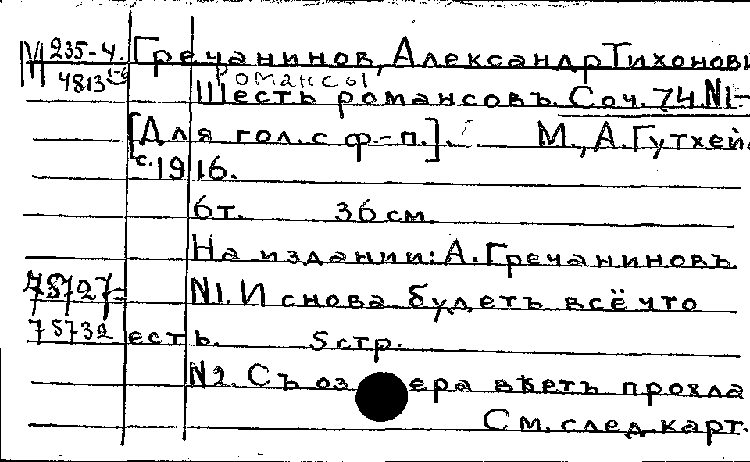 М 235-4. Гречанинов, Александр Тихонови
4813 Романсы
Шесть романсовъ. Соч. 74. N1-
[Для гол. с ф.-п.]. М., А. Гутхей
с. 1916.
6т. 36 см.
На издании: А. Гречаниновъ.
78727- N1. И снова будетъ всё что
78732 есть. 5 стр.
N2. Съ озера вѣетъ прохла
См. след. карт.